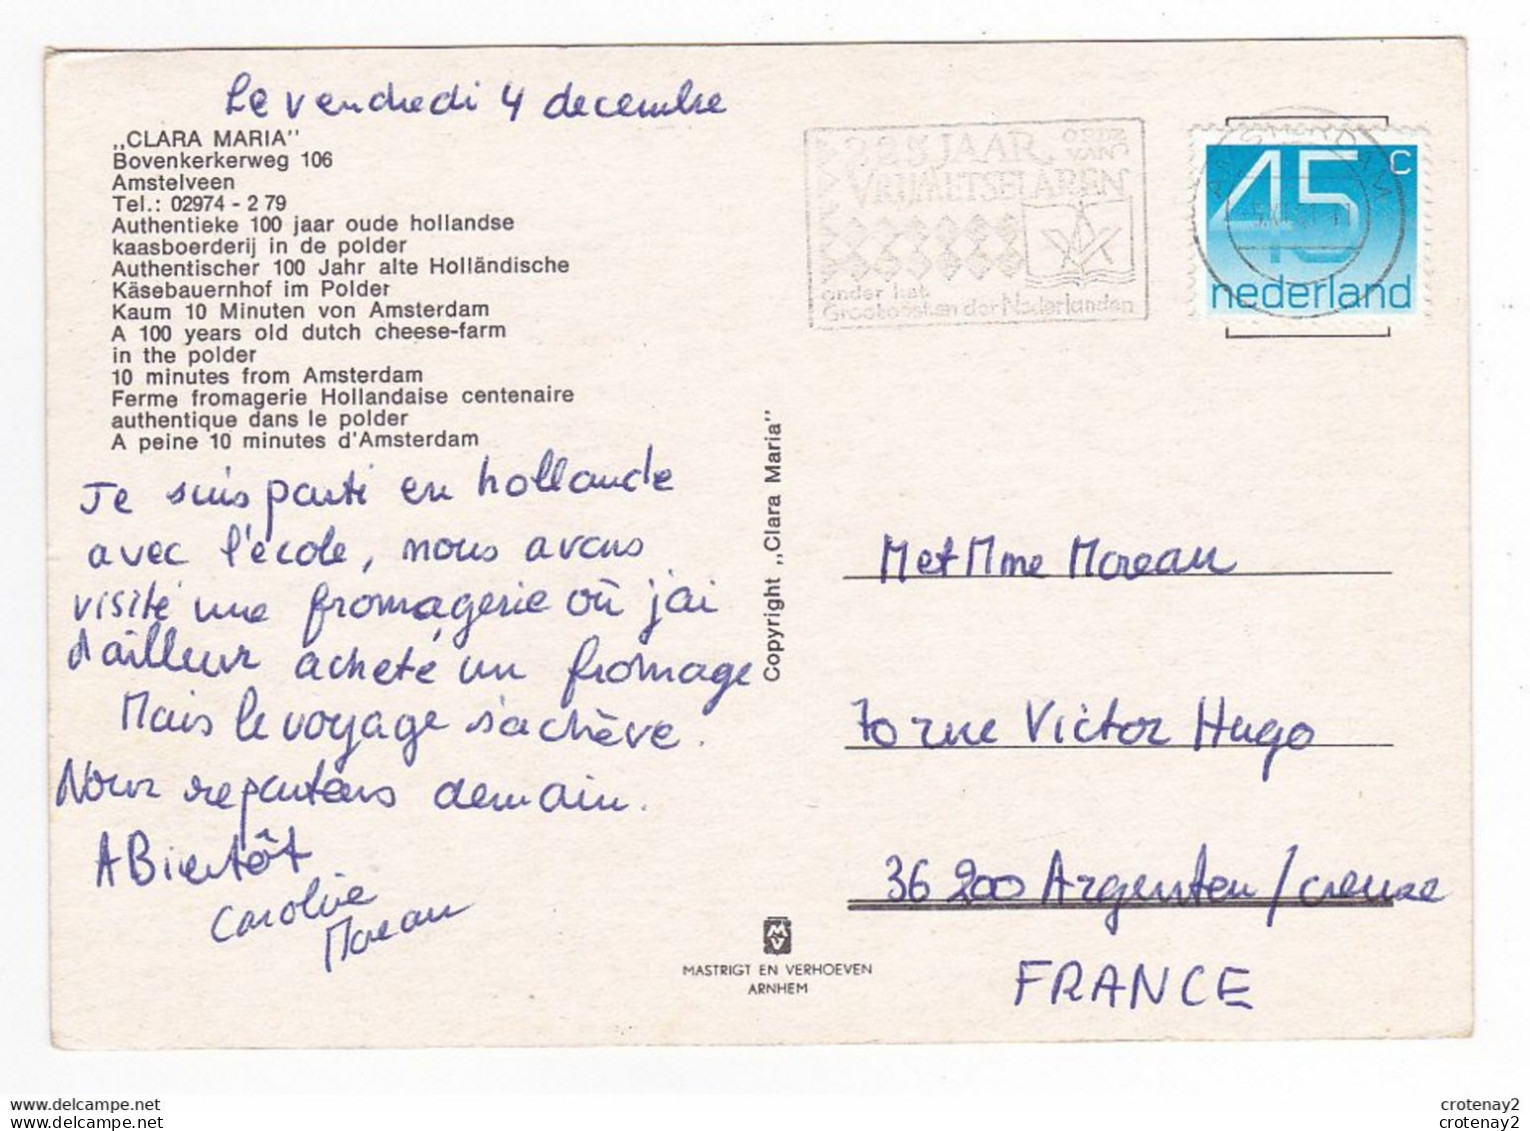 Le vendredi 4 decembre
„CLARA MARIA''
Bovenkerkerweg 106
Amstelveen
Tel.: 02974 - 2 79
Authentieke 100 jaar oude hollandse
kaasboerderij in de polder
Authentischer 100 Jahr alte Holländische
Käsebauernhof im Polder
Kaum 10 Minuten von Amsterdam
A 100 years old dutch cheese-farm
in the polder
10 minutes from Amsterdam
Ferme fromagerie Hollandaise centenaire
authentique dans le polder
A peine 10 minutes d'Amsterdam
Je suis parti en hollande
avec l'école, nous avons
visité une fromagerie où j'ai
d'ailleur acheté un fromage
Mais le voyage s'achève.
Nous repartons demain.
A Bientôt
Caroline
Moreau
Copyright „Clara Maria''
MASTRIGT EN VERHOEVEN
ARNHEM
225 JAAR ORDE
VAN
VRIJMETSELAREN
onder het
Grootoosten der Nederlanden
AMSTERDAM
45 c
nederland
M et Mme Moreau
70 rue Victor Hugo
36 200 Argenten / creuse
FRANCE
crotenay2
crotenay2
crotenay2
crotenay2